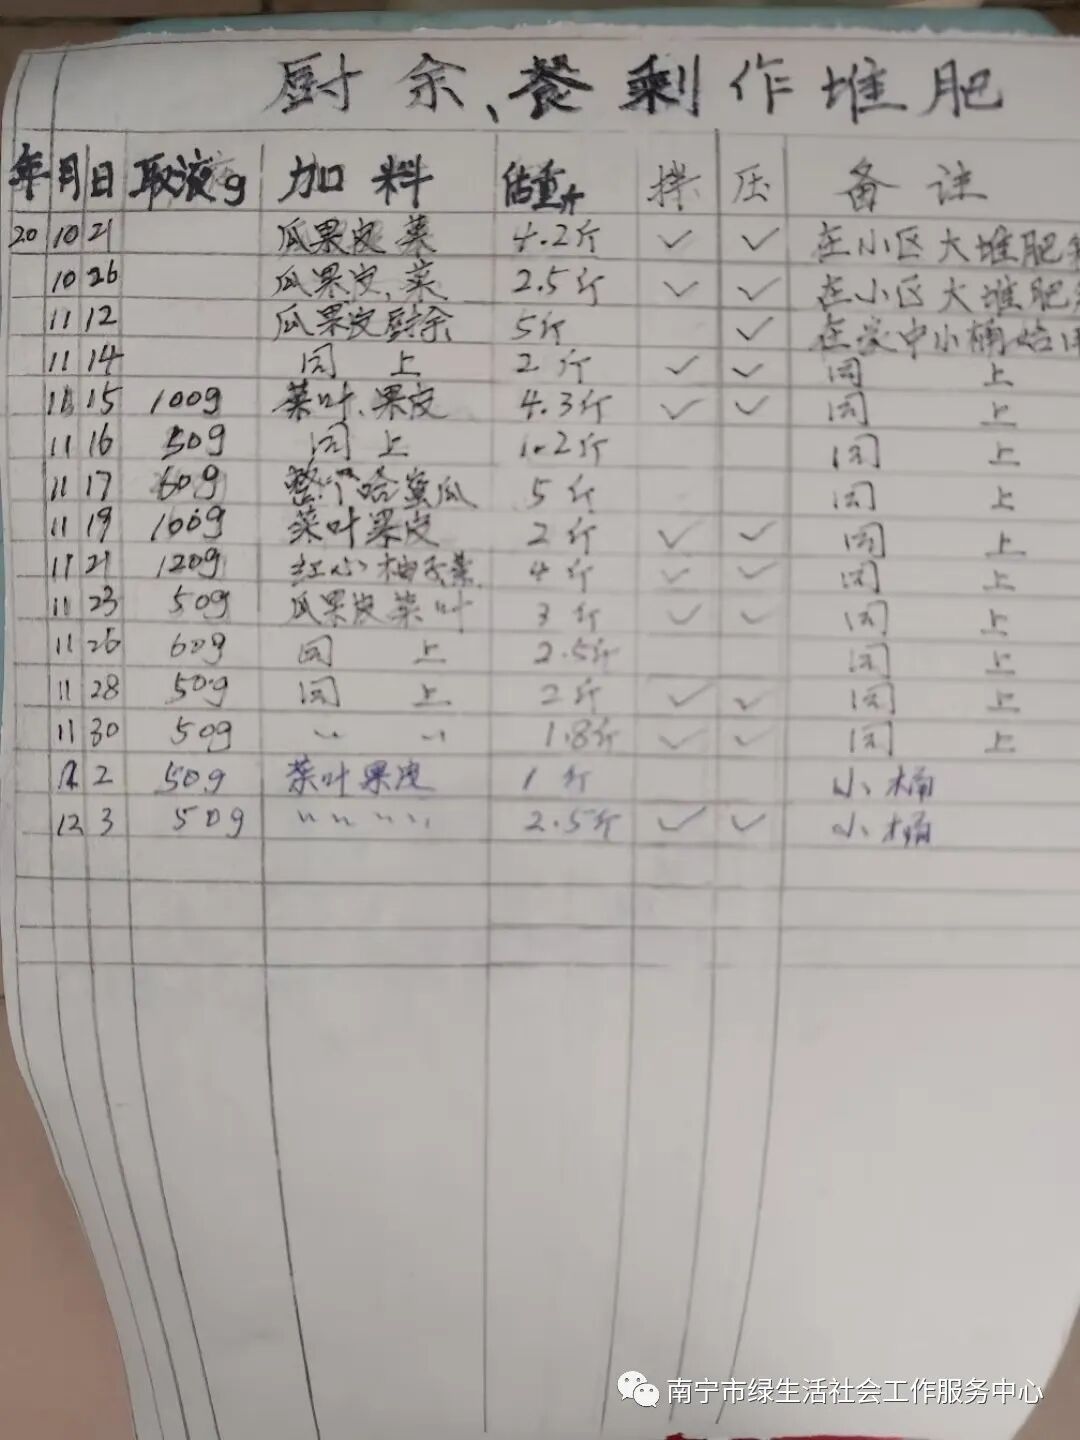 厨余、餐剩作堆肥
年 月 日 取液g 加料 估重斤 拌 压 备注
20 10 21 瓜果皮菜 4.2斤 ✓ ✓ 在小区大堆肥
10 26 瓜果皮、菜 2.5斤 ✓ ✓ 在小区大堆肥
11 12 瓜果皮厨余 5斤 ✓ 在家中小桶始
11 14 同上 2斤 ✓ ✓ 同上
11 15 100g 菜叶、果皮 4.3斤 ✓ ✓ 同上
11 16 50g 同上 1.2斤 同上
11 17 60g 整个哈蜜瓜 5斤 同上
11 19 100g 菜叶果皮 2斤 ✓ ✓ 同上
11 21 120g 红心柚子菜 4斤 ✓ ✓ 同上
11 23 50g 瓜果皮菜叶 3斤 ✓ ✓ 同上
11 26 60g 同上 2.5斤 同上
11 28 50g 同上 2斤 ✓ ✓ 同上
11 30 50g 〃 〃 1.8斤 ✓ ✓ 同上
12 2 50g 菜叶果皮 1斤 小桶
12 3 50g 〃〃〃〃 2.5斤 ✓ ✓ 小桶
南宁市绿生活社会工作服务中心